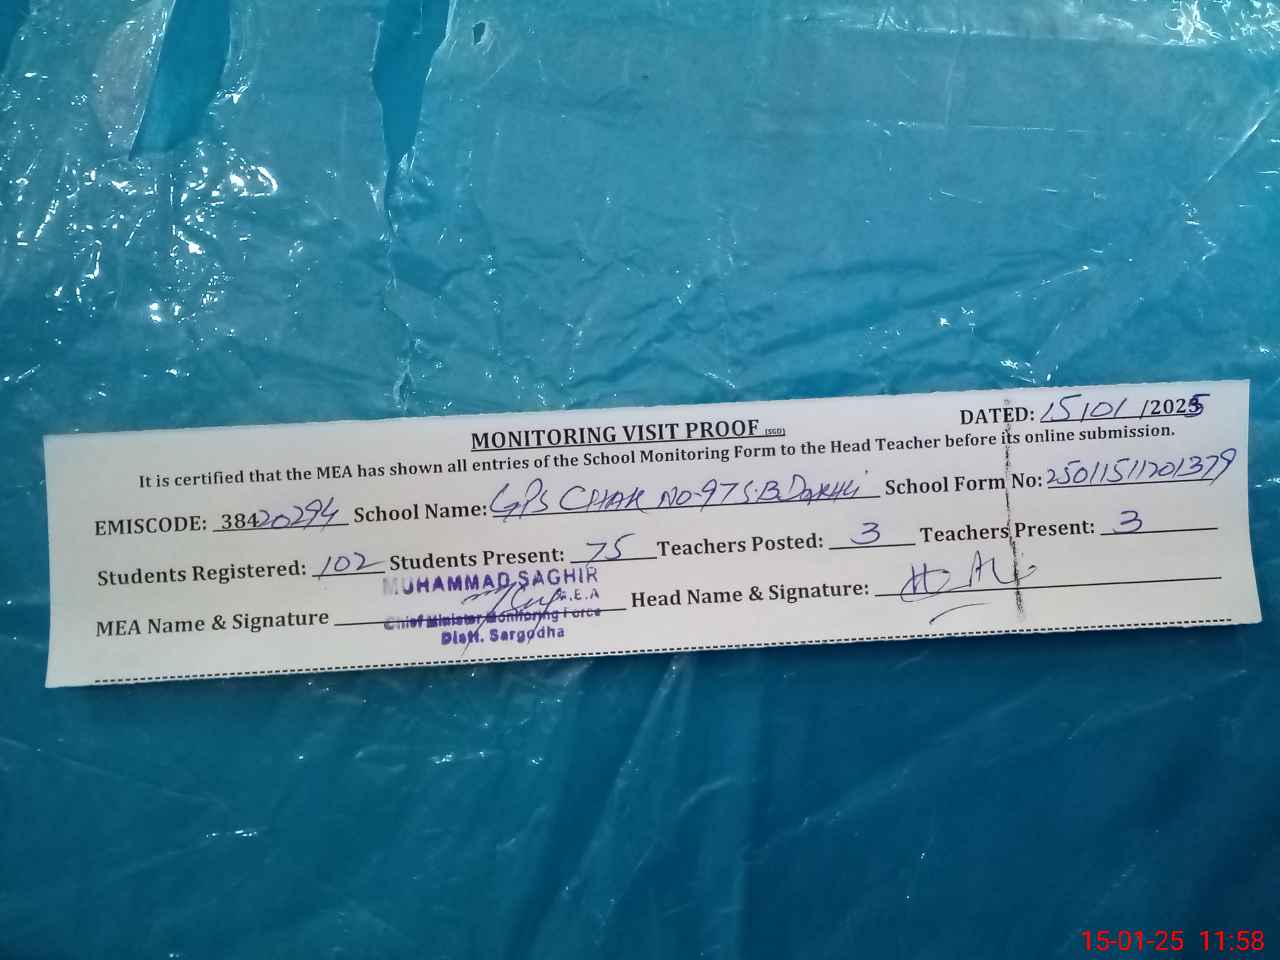 MONITORING VISIT PROOF (SGD)
DATED: 15/01/2025
It is certified that the MEA has shown all entries of the School Monitoring Form to the Head Teacher before its online submission.
EMISCODE: 38420294 School Name: GPS CHAK NO-97 S.B DAKHLI School Form No: 25011511201379
Students Registered: 102 Students Present: 75 Teachers Posted: 3 Teachers Present: 3
MUHAMMAD SAGHIR
M.E.A
MEA Name & Signature Head Name & Signature:
Chief Minister Monitoring Force
Distt. Sargodha
15-01-25 11:58